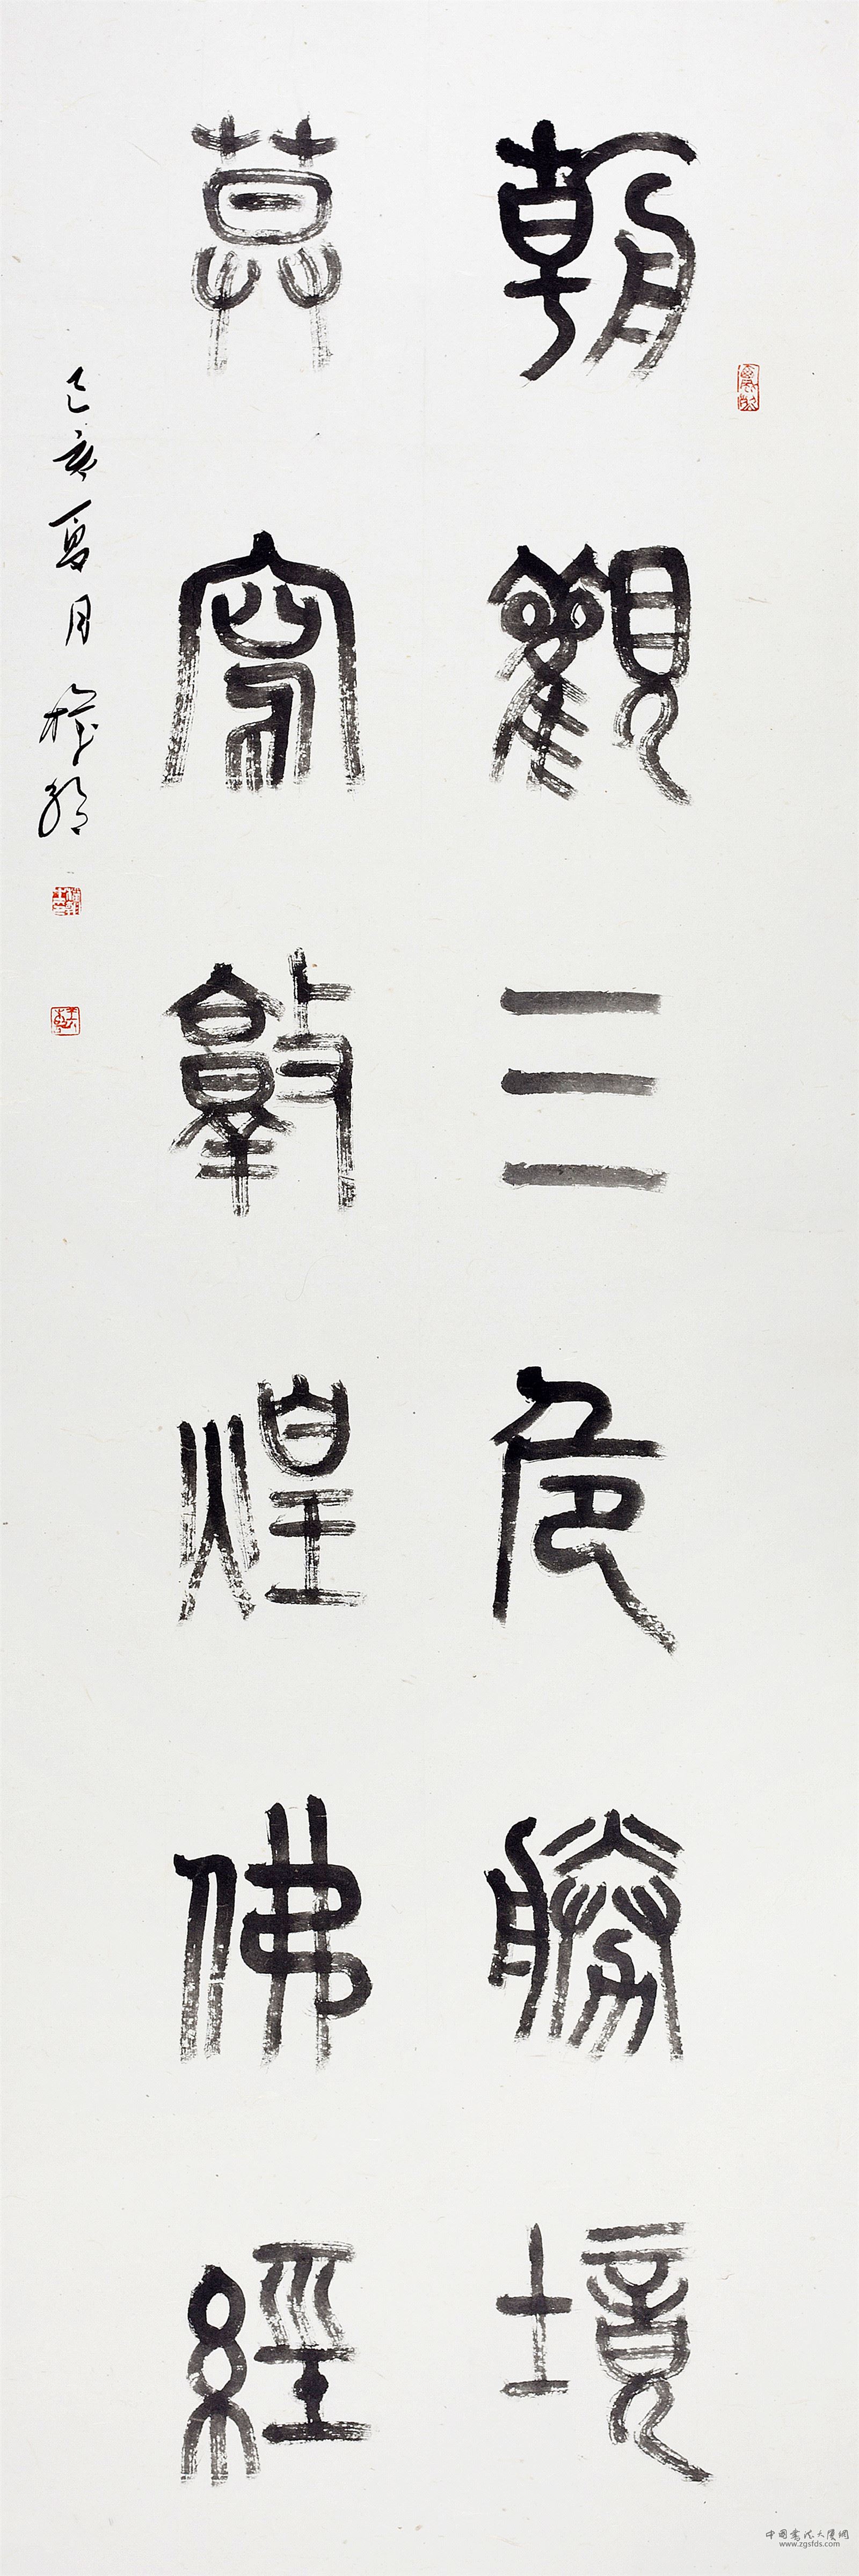 朝觀三危勝境
莫寫敦煌佛經
己亥夏月
中国書法大廈網
www.zgsfds.com